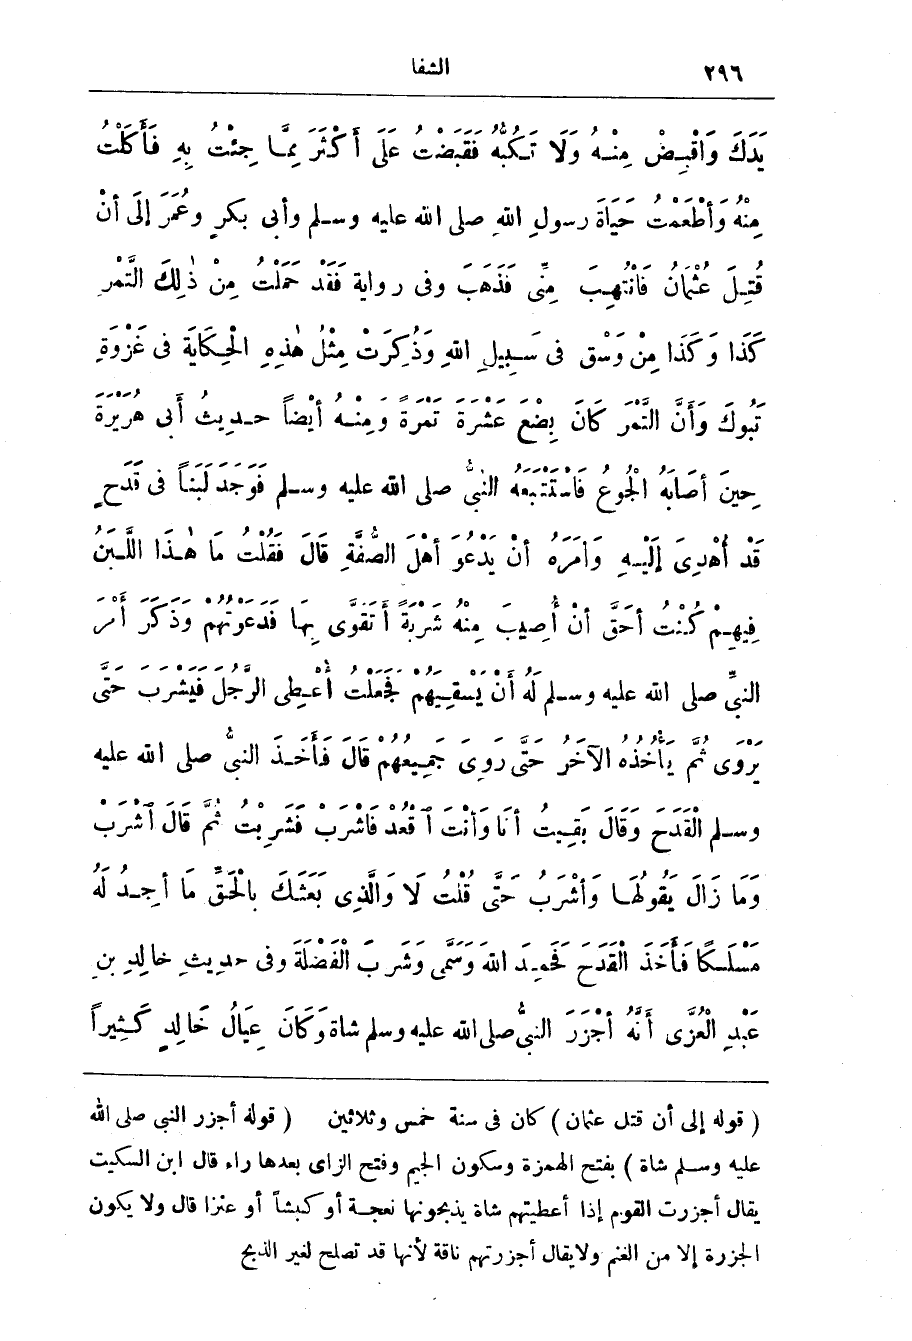 ٢٩٦
الشفا
يَدَكَ وَاقْبِضْ مِنْهُ وَلَا تَكُبَّهُ فَقَبَضْتُ عَلَى أَكْثَرَ مِمَّا جِئْتُ بِهِ فَأَكَلْتُ
مِنْهُ وَأَطْعَمْتُ حَيَاةَ رسولِ اللهِ صلى الله عليه وسلم وأبى بكرٍ وعُمَرَ إلَى أنْ
قُتِلَ عُثْمَانُ فَانْتُهِبَ مِنِّى فَذَهَبَ وفى رواية فَقَدْ حَمَلْتُ مِنْ ذٰلِكَ التَّمْرِ
كَذَا وَكَذَا مِنْ وَسْقٍ فى سَبِيلِ اللهِ وَذُكِرَتْ مِثْلُ هٰذِهِ الْحِكَايَةِ فى غَزْوَةِ
تَبُوكَ وَأَنَّ التَّمْرَ كَانَ بِضْعَ عَشْرَةَ تَمْرَةً وَمِنْهُ أيْضاً حديثُ أبى هُرَيْرَةَ
حِينَ أصَابَهُ الْجُوعُ فَاسْتَتْبَعَهُ النبىُّ صلى الله عليه وسلم فَوَجَدَ لَبَناً فى قَدَحٍ
قَدْ أُهْدِىَ إلَيْهِ وَأمَرَهُ أنْ يَدْعُوَ أهْلَ الصُّفَّةِ قَالَ فَقُلْتُ مَا هٰذَا اللَّبَنُ
فِيهِمْ كُنْتُ أحَقَّ أنْ أُصِيبَ مِنْهُ شَرْبَةً أَتَقَوَّى بِهَا فَدَعَوْتُهُمْ وَذَكَرَ أَمْرَ
النبىِّ صلى الله عليه وسلم لَهُ أَنْ يَسْقِيَهُمْ فَجَعَلْتُ أُعْطِى الرَّجُلَ فَيَشْرَبُ حَتَّى
يَرْوَى ثُمَّ يَأْخُذُهُ الآخَرُ حَتَّى رَوِىَ جَمِيعُهُمْ قَالَ فَأَخَذَ النبىُّ صلى الله عليه
وسلم الْقَدَحَ وَقَالَ بَقِيتُ أنَا وَأنْتَ ٱقْعُدْ فَاشْرَبْ فَشَرِبْتُ ثُمَّ قَالَ ٱشْرَبْ
وَمَا زَالَ يَقُولُهَا وَأشْرَبُ حَتَّى قُلْتُ لَا وَالَّذِى بَعَثَكَ بِالْحَقِّ مَا أجِدُ لَهُ
مَسْلَكًا فَأَخَذَ الْقَدَحَ فَحَمِدَ اللهَ وَسَمَّى وَشَرِبَ الْفَضْلَةَ وفى حديثِ خالِدِ بنِ
عَبْدِ الْعُزَّى أَنَّهُ أجْزَرَ النبىَّ صلى الله عليه وسلم شاة وَكَانَ عِيَالُ خَالِدٍ كَثِيراً
( قوله إلى أن قتل عثمان ) كان فى سنة خمس وثلاثين ( قوله أجزر النبى صلى الله
عليه وسلم شاة ) بفتح الهمزة وسكون الجيم وفتح الزاى بعدها راء قال ابن السكيت
يقال أجزرت القوم إذا أعطيتهم شاة يذبحونها نعجة أو كبشاً أو عنزا قال ولا يكون
الجزرة إلا من الغنم ولا يقال أجزرتهم ناقة لأنها قد تصلح لغير الذبح